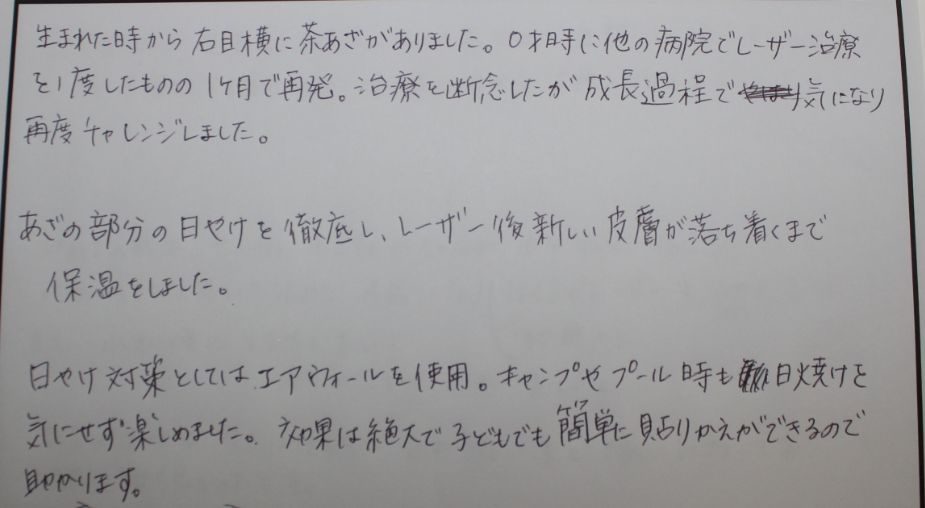 生まれた時から右目横に茶あざがありました。0才時に他の病院でレーザー治療
を1度したものの1ヶ月で再発。治療を断念したが成長過程で気になり
再度チャレンジしました。
あざの部分の日やけを徹底し、レーザー後新しい皮膚が落ち着くまで
保温をしました。
日やけ対策としてはエアウォールを使用。キャンプやプール時も日焼けを
気にせず楽しめました。効果は絶大で子どもでも簡単に貼りかえができるので
助かります。